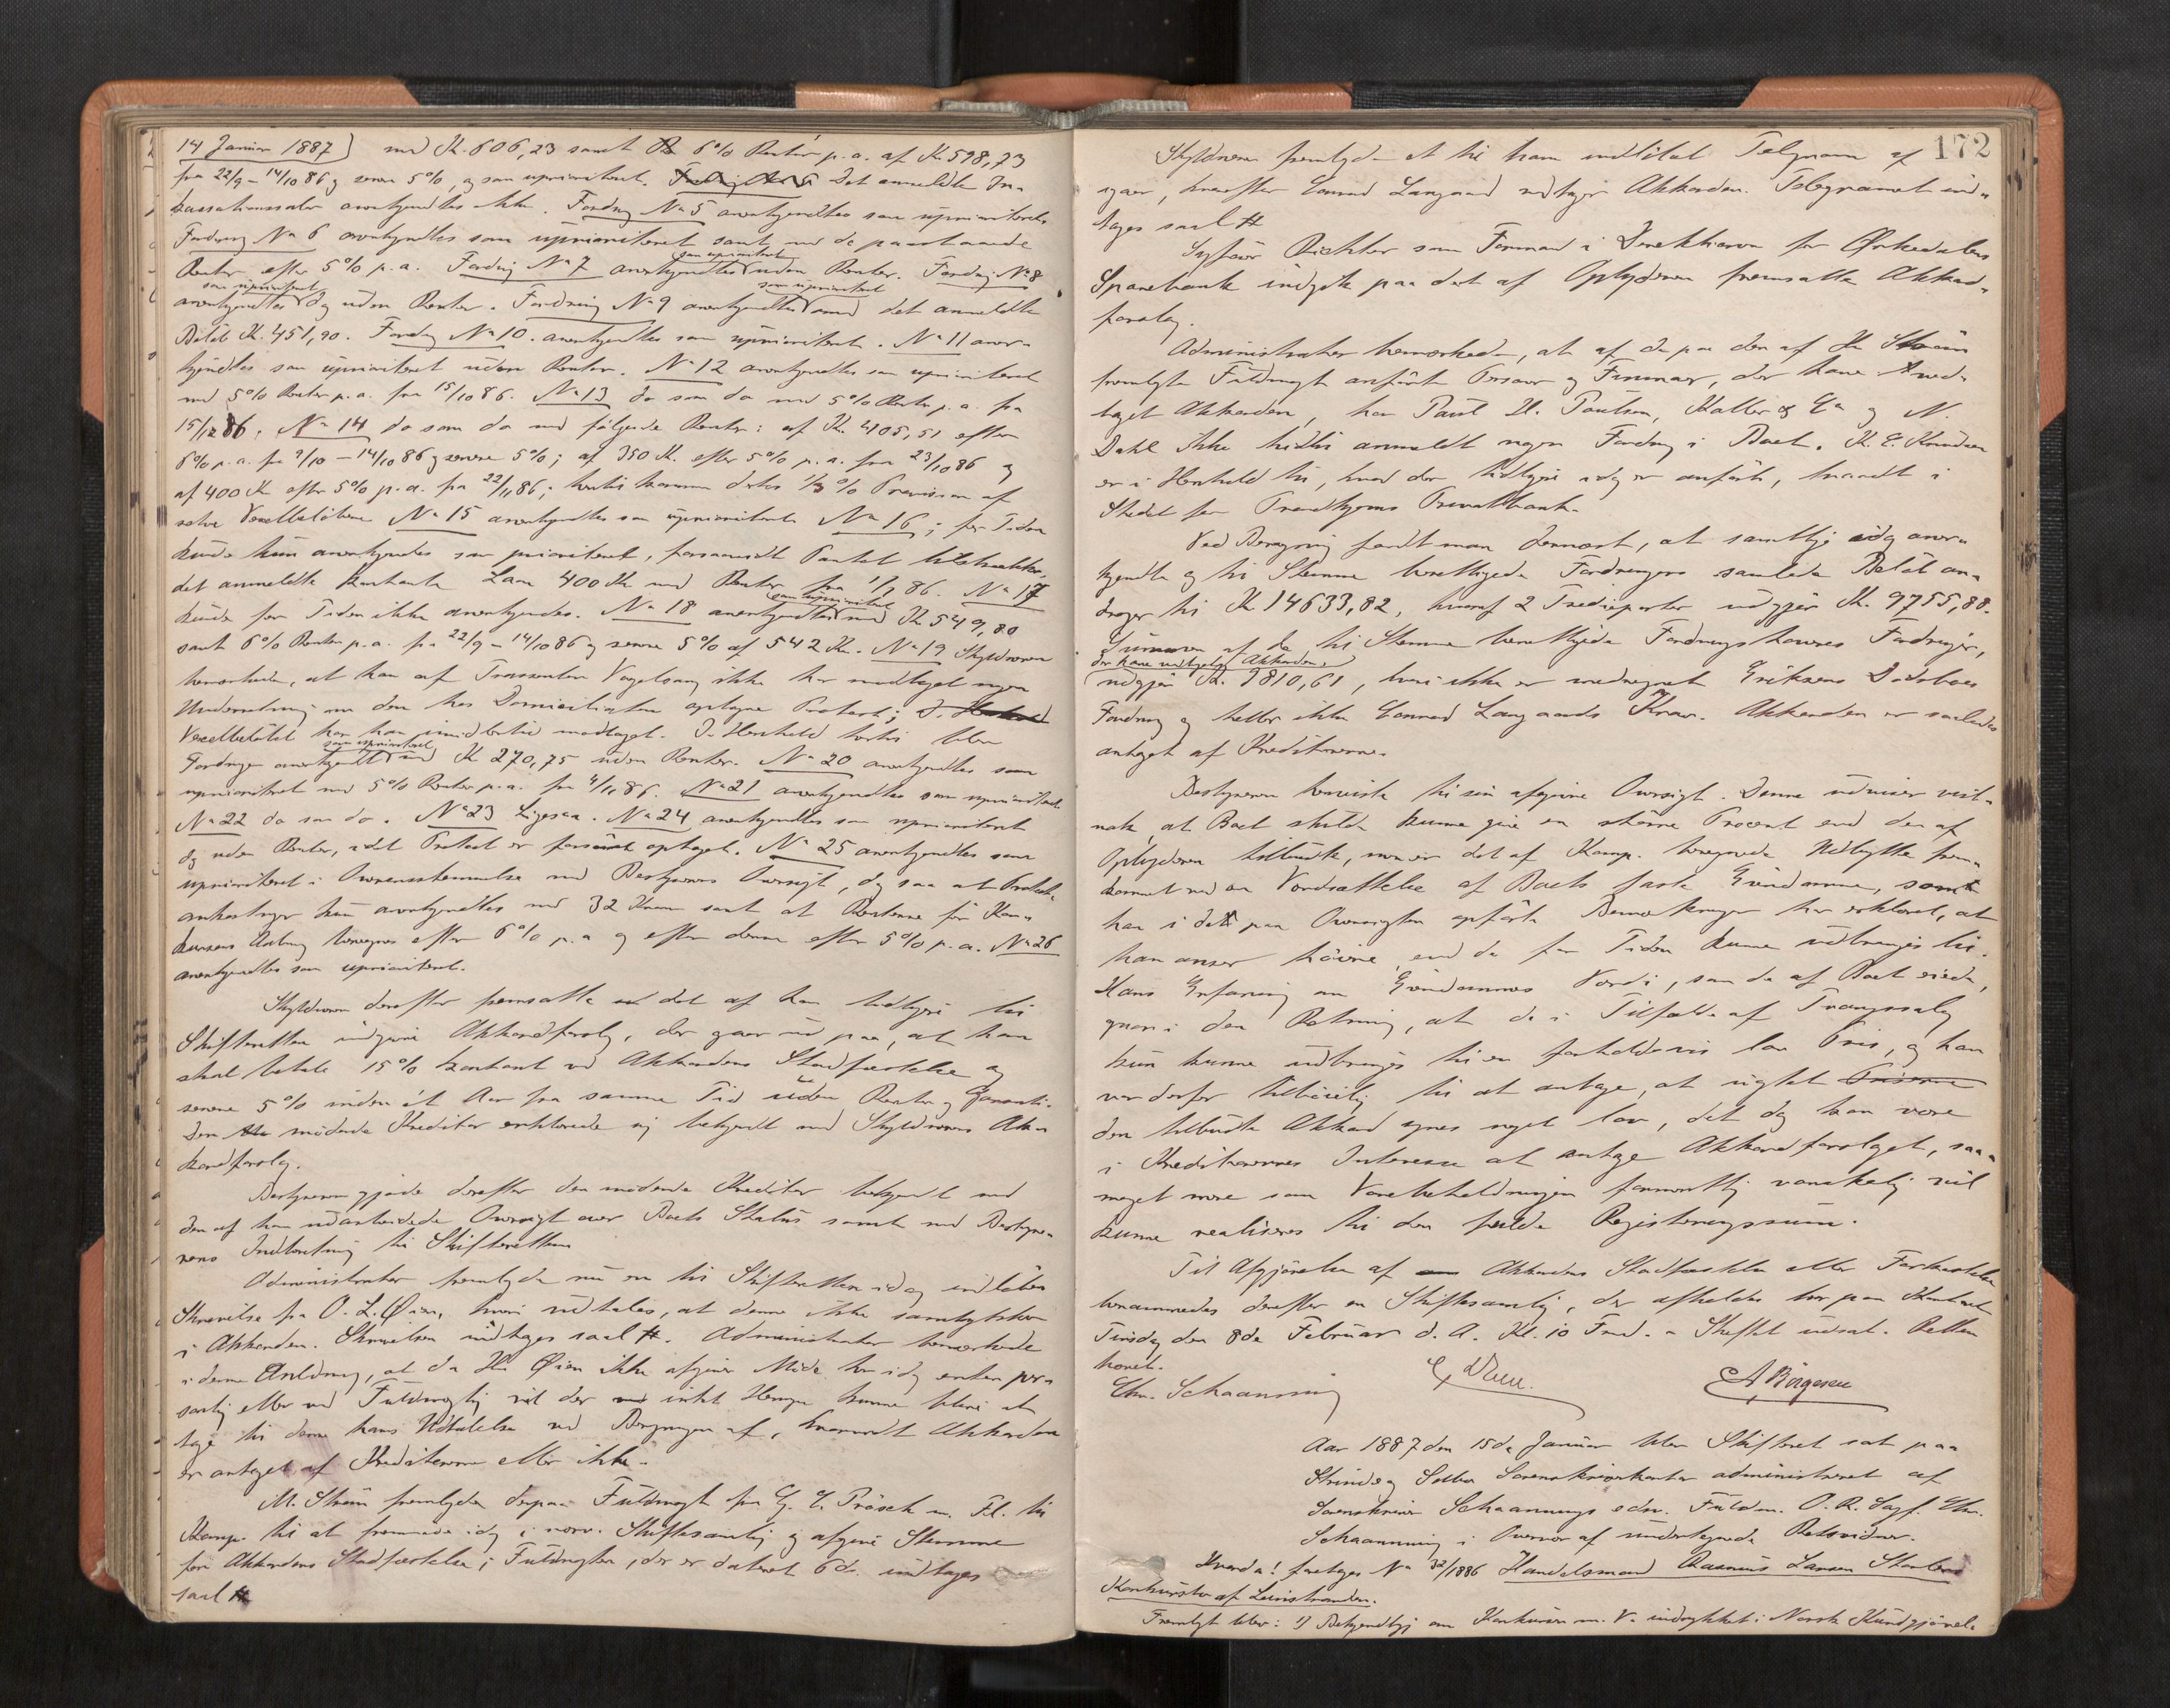 14 Januar 1887) med Kr. 606,23 samt 6% Renter p. a. af Kr. 598,73
fra 22/9 - 14/10 86 og senere 5%, og som uprioriteret. Det anmeldte In-
kassationssalær anerkjendtes ikke. Fordring No 5 anerkjendtes som uprioriteret
Fordring No 6 anerkjendtes som uprioriteret samt med de paastaaede
Renter efter 5% p. a. Fordring No 7 anerkjendtes som uprioriteret uden Renter. Fordring No 8
anerkjendtes som uprioriteret og uden Renter. Fordring No 9 anerkjendtes som uprioriteret med det anmeldte
Beløb Kr. 451,90. Fordring No 10. anerkjendtes som uprioriteret. No 11 aner-
kjendtes som uprioriteret uden Renter. No 12 anerkjendtes som uprioriteret
med 5% Renter p. a. fra 15/10 86. No 13 do som do med 5% Renter p. a. fra
15/12 86. No 14 do som do med følgende Renter: af Kr. 405,51 efter
6% p. a. fra 9/10 - 14/10 86 og senere 5%; af 350 Kr. efter 5% p. a. fra 23/10 86 og
af 400 Kr efter 5% p. a. fra 22/11 86; hertil kommer derhos 1/3 % Provision af
selve Vexelbeløbene No 15 anerkjendtes som uprioriteret No 16; for Tiden
kunde kun anerkjendes som prioriteret, forsaavidt Pantet tilstrækker,
det anmeldte kontante Laan 400 Kr med Renter fra 1/1 86. No 17
kunde for Tiden ikke anerkjendes. No 18 anerkjendtes som uprioriteret med Kr 549,80
samt 6% Renter p. a. fra 22/9 - 14/10 86 og senere 5% af 542 Kr. No 19 Skyldneren
bemærkede, at han af Trassenten Vogelsang ikke har modtaget nogen
Underretning om den hos Domiciliaten optagne Protest;
Vexelbeløbet har han imidlertid modtaget. I Henhold hertil blev
Fordringen anerkjendt som uprioriteret med Kr 270,75 uden Renter. No 20 anerkjendtes som
uprioriteret med 5% Renter p. a. fra 4/11 86. No 21 anerkjendtes som uprioriteret
No 22 do som do. No 23 Ligesaa. No 24 anerkjendtes som uprioriteret
dog uden Renter, idet Protest er forsent optaget. No 25 anerkjendtes som
uprioriteret i Overensstemmelse med Bestyrerens Oversigt, dog saa at Protest-
omkostninger kun anerkjendtes med 32 Kroner samt at Renterne før Kon-
kursens Aabning beregnes efter 6% p. a. og efter denne efter 5% p. a. No 26
anerkjendtes som uprioriteret.
Skyldneren derefter fremsatte det af ham tidligere til
Skifteretten indgivne Akkordforslag, der gaar ud paa, at han
skal betale 15% kontant ved Akkordens Stadfæstelse og
senere 5% inden ét Aar fra samme Tid uden Renter og Garanti.
Den mødende Kreditor erklærede sig bekjendt med Skyldnerens Ak-
kordforslag.
Bestyreren gjorde derefter den mødende Kreditor bekjendt med
den af ham udarbeidede Oversigt over Boets Status samt med Bestyre-
rens Indberetning til Skifteretten
Administrator fremlagde nu en til Skifteretten idag indløben
Skrivelse fra O. L. Øien, hvori udtales, at denne ikke samtykker
i Akkorden. Skrivelsen indtages saal. #. Administrator bemærkede
i denne Anledning, at da Hr Øien ikke afgiver Møde her idag enten per-
sonlig eller ved Fuldmægtig vil der intet Hensyn kunne blive at
tage til denne hans Udtalelse ved Beregningen af, hvorvidt Akkorden
er antaget af Kreditorerne eller ikke.
M. Strøm fremlagde derpaa Fuldmagt fra G. C. Prösch m. Fl. til
Komp. til at fremmøde idag i nærv. Skiftesamling og afgive Stemme
for Akkordens Stadfæstelse; Fuldmagten, der er dateret 6ds. indtages
saal #
172
Skyldneren fremlagde et til ham indløbet Telegram af
igaar, hvorefter Conrad Langaard vedtager Akkorden. Telegramet ind-
tages saal #
Sagfører Richter som Formand i Direktionen for Ørkedalens
Sparebank indgik paa det af Opbyderen fremsatte Akkord-
forslag.
Administrator bemærkede, at af de paa den af Hr Strøm
fremlagte Fuldmagt anførte Personer og Firmaer, der have ved-
taget Akkorden, har Paul H. Poulsen, Koller & Co og N.
Dahl ikke hidtil anmeldt nogen Fordring i Boet. K. E. Knudsen
er i Henhold til, hvad der tidligere idag er anført, traadt i
Stedet for Trondhjems Privatbank.
Ved Beregning fandt man dernæst, at samtlige idag aner-
kjendte og til Stemme berettigede Fordringers samlede Beløb an-
drager til Kr. 14633,82, hvoraf 2 Trediparter udgjør Kr. 9755,88.
Summen af de til Stemme berettigede Fordringshaveres Fordringer,
der have vedtaget Akkorden,
udgjør Kr. 9810,61, hvori ikke er medregnet Eriksens Dødsboes
Fordring og heller ikke Conrad Langaards Krav. Akkorden er saaledes
antaget af Kreditorerne.
Bestyreren henviste til sin afgivne Oversigt. Denne udviser vist-
nok, at Boet skulde kunne give en større Procent end den af
Opbyderen tilbudte, men er det af Komp. beregnede Udbytte frem-
kommet ved en Værdsættelse af Boets faste Eiendomme, som
han i dette paa Oversigten opførte Bemærkninger har erklæret, at
han anser høiere end de for Tiden kunne udbringes til.
Hans Erfaring om Eiendommes Værdi, som de af Boet eiede,
gaar i den Retning, at de i Tilfælde af Tvangssalg
kun kunne udbringes til en forholdsvis lav Pris, og han
var derfor tilbøielig til at antage, at uagtet
den tilbudte Akkord synes noget lav, det dog kan være
i Kreditorernes Interesse at antage Akkordforslaget, saa-
meget mere som Varebeholdningen formentlig vanskelig vil
kunne realiseres til den fulde Registreringssum.
Til Afgjørelse af Akkordens Stadfæstelse eller Forkastelse
berammedes derefter en Skiftesamling, der afholdes her paa Kontoret
Tirsdag den 8de Februar d. A. Kl. 10 Fmd. Skiftet udsat. Retten
hævet.
Chr. Schaanning
A Birgersen
Aar 1887 den 15de Januar blev Skifteret sat paa
Strinde og Selbu Sorenskriverkontor administreret af
Sorenskriver Schaannings edsv. Fuldm. O. R. Sagf. Chr.
Schaanning i Overvær af undertegnede Retsvidner.
Hvorda! foretoges No 32/1886 Handelsmand Rasmus Larsen
Konkursbo af Leinstranden.
Fremlagt blev: 1) Bekjendtgj. om Konkursen m. V. indrykket i Norske Kundgjørelses